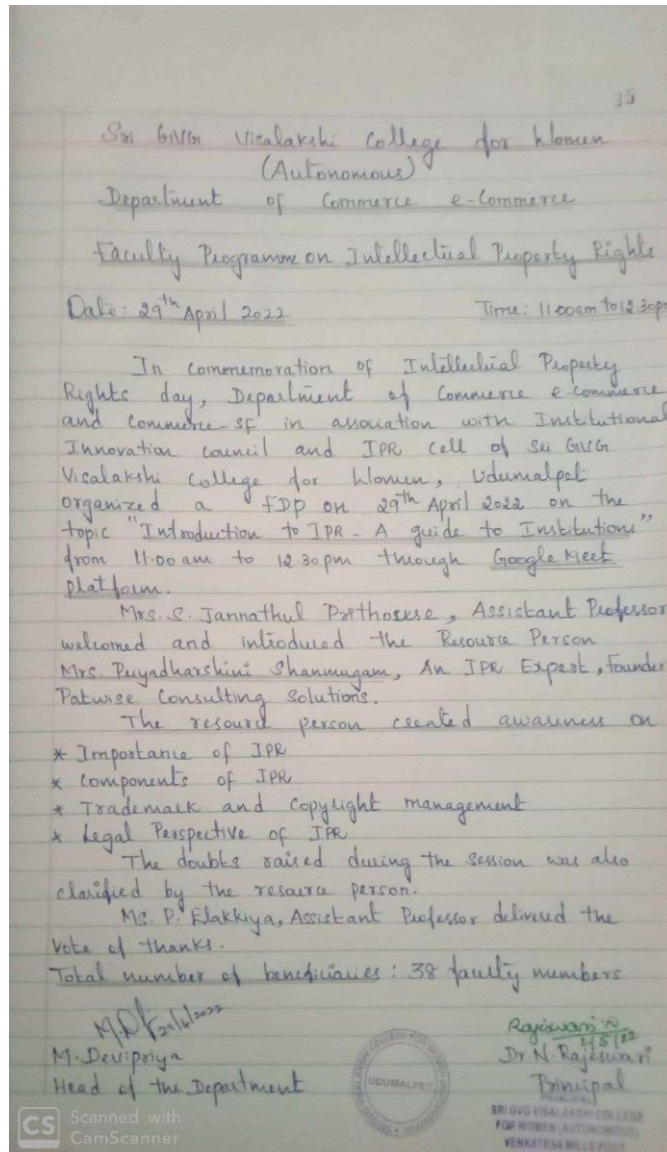 35
Sri GVG Visalakshi College for Women
(Autonomous)
Department of Commerce e-Commerce
Faculty Programme on Intellectual Property Rights
Date: 29th April 2022 Time: 11.00am to 12.30pm
In commemoration of Intellectual Property
Rights day, Department of Commerce e-commerce
and Commerce-SF in association with Institutional
Innovation council and IPR cell of Sri GVG
Visalakshi College for Women, Udumalpet
organized a FDP on 29th April 2022 on the
topic "Introduction to IPR - A guide to Institutions"
from 11.00 am to 12.30 pm through Google Meet
platform.
Mrs. S. Jannathul Pirthouse, Assistant Professor
welcomed and introduced the Resource Person
Mrs. Priyadharshini Shanmugam, An IPR Expert, Founder
Patwise Consulting Solutions.
The resource person created awareness on
* Importance of IPR
* Components of IPR
* Trademark and Copyright management
* Legal Perspective of IPR
The doubts raised during the session was also
clarified by the resource person.
Ms. P. Elakkiya, Assistant Professor delivered the
Vote of thanks.
Total number of beneficiaries : 38 faculty members
29/4/2022
M. Devipriya
Head of the Department
UDUMALPET
Rajeswari N
2/5/22
Dr. N. Rajeswari
Principal
PRINCIPAL
SRI GVG VISALAKSHI COLLEGE
FOR WOMEN (AUTONOMOUS)
VENKATESA MILLS POST
CS Scanned with
CamScanner